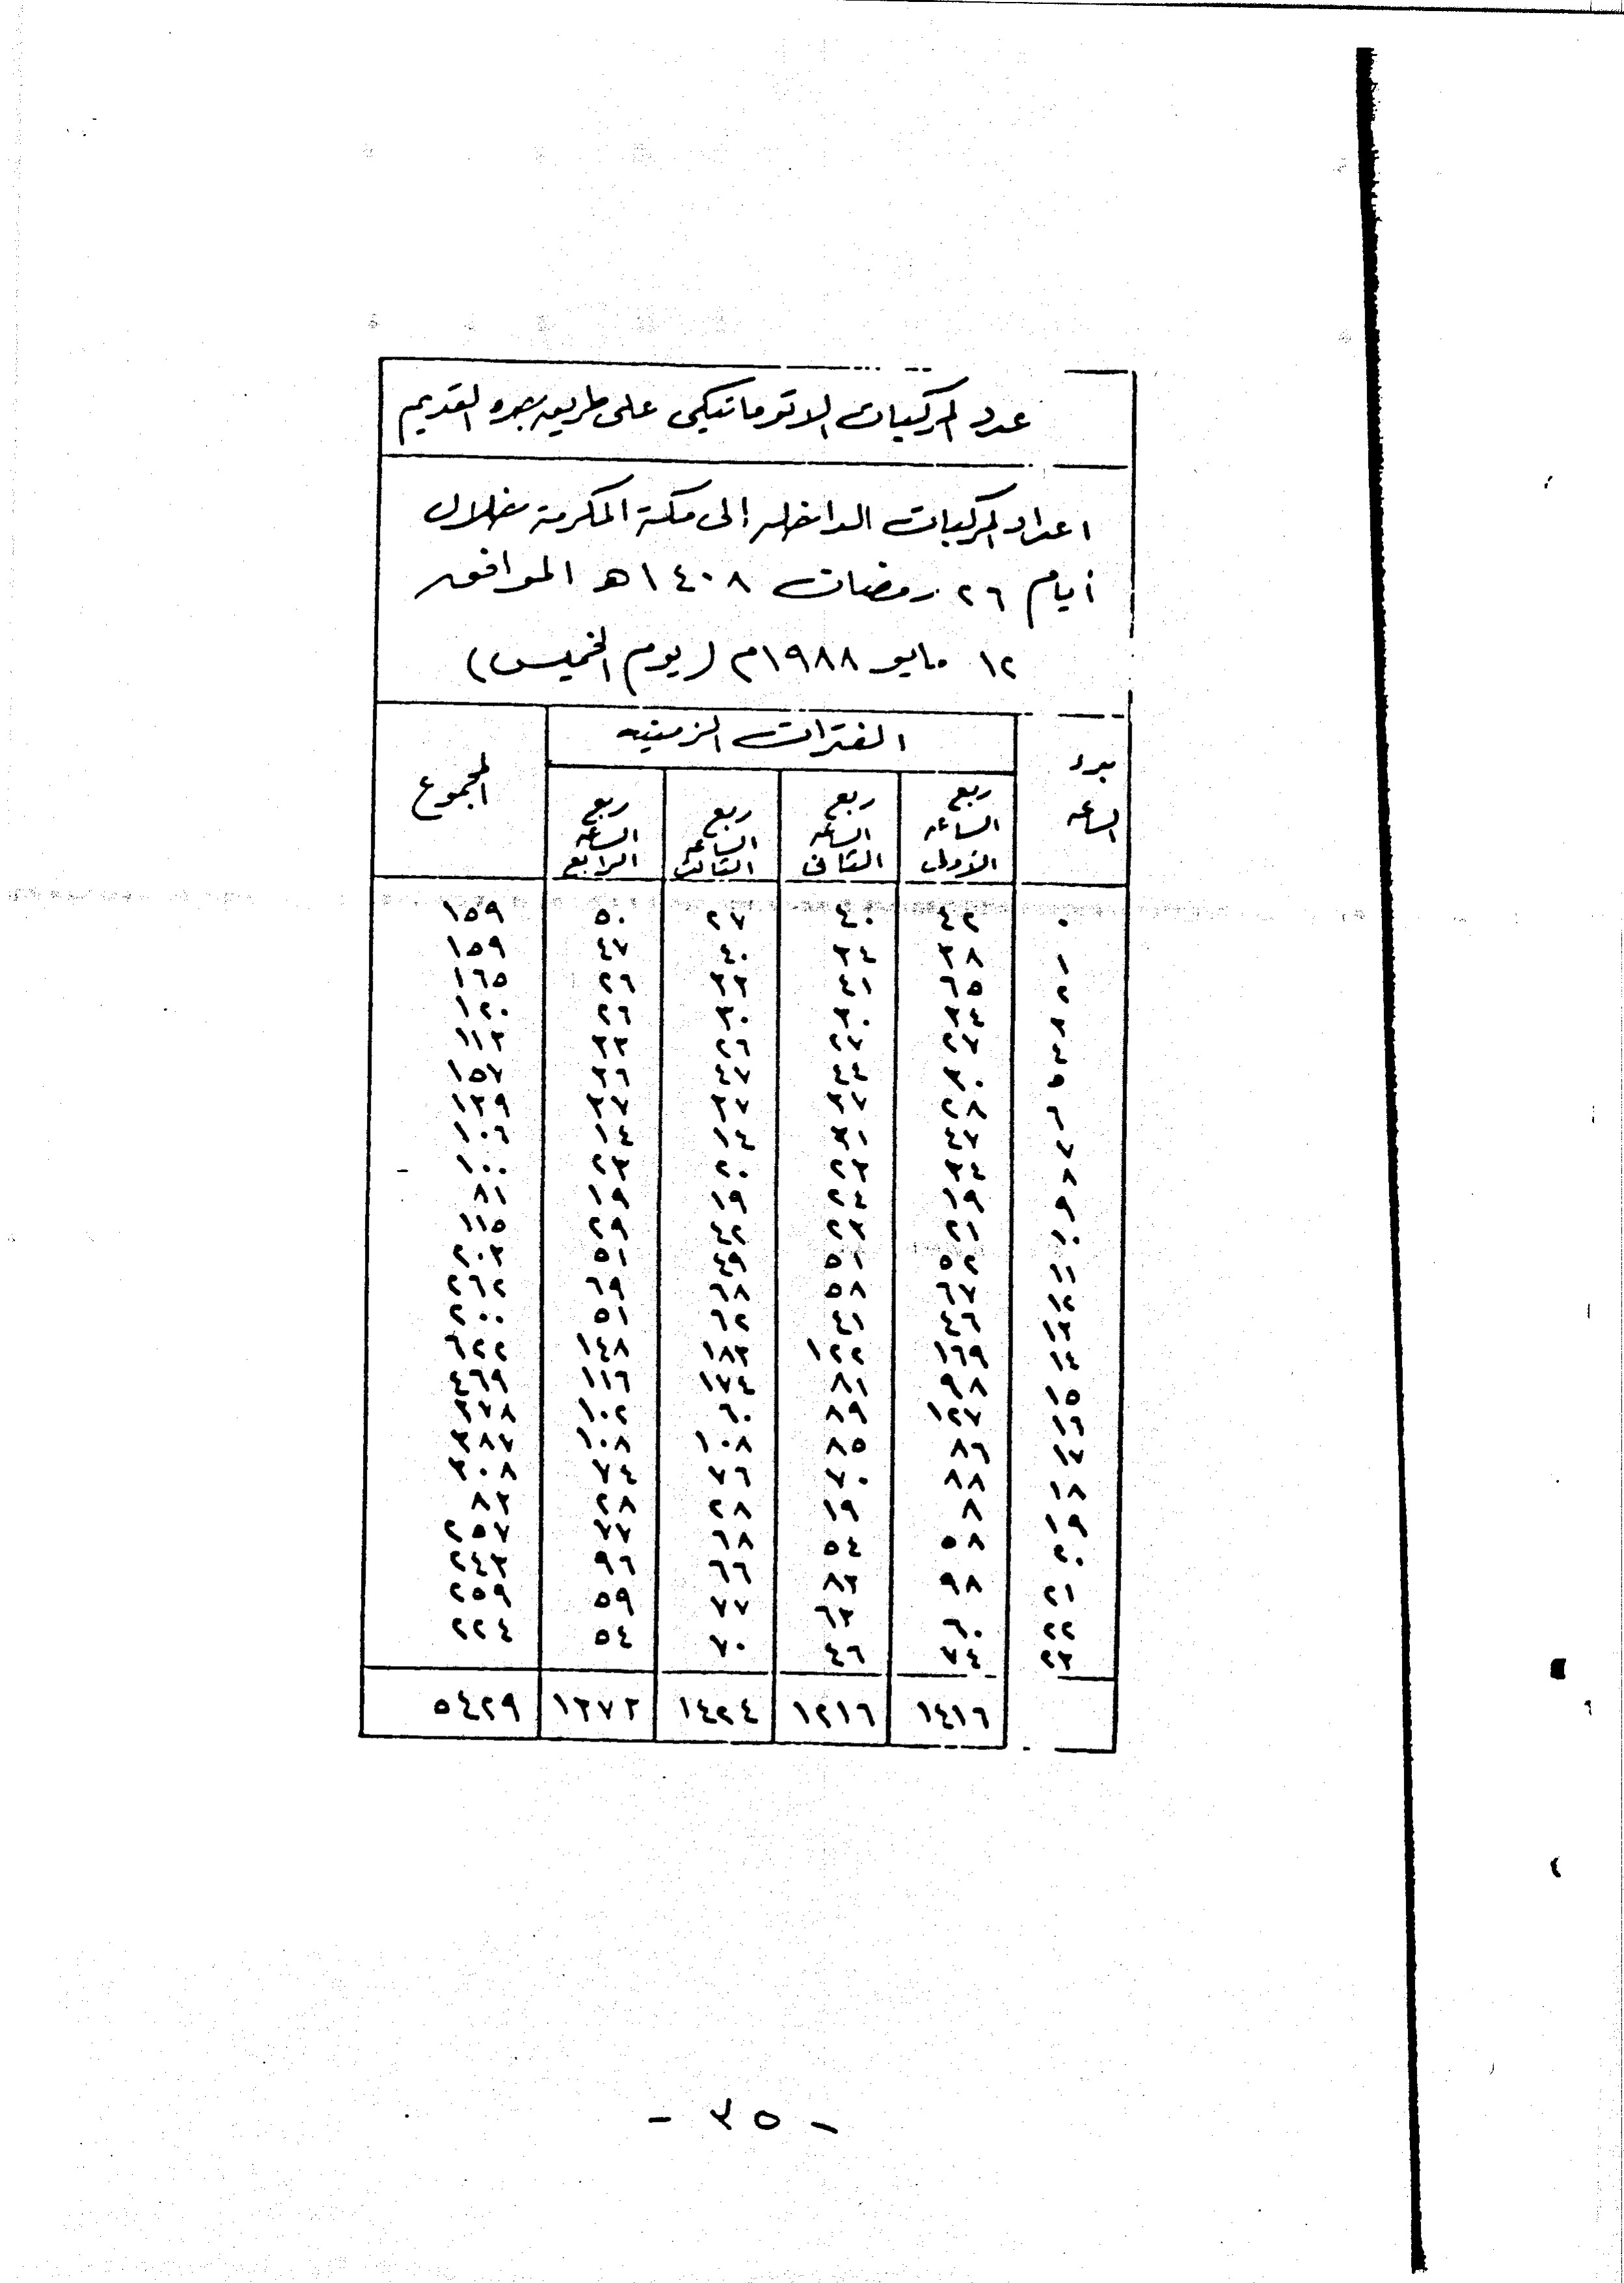 عدد المركبات الاتوماتيكى على طريق جده القديم
اعداد المركبات الداخله إلى مكة المكرمة خلال
أيام ٢٦ رمضان ١٤٠٨هـ الموافق
١٢ مايو ١٩٨٨م (يوم الخميس)
بدء الساعه الفترات الزمنيه المجموع
ربع الساعه الأولى ربع الساعه الثانى ربع الساعه الثالث ربع الساعه الرابع
٠ ٤٢ ٤٠ ٢٧ ٥٠ ١٥٩
١ ٣٨ ٣٤ ٤٠ ٤٧ ١٥٩
٢ ٦٥ ٤١ ٣٣ ٢٦ ١٦٥
٣ ٣٤ ٣٠ ٣٠ ٢٦ ١٢٠
٤ ٢٧ ٢٧ ٢٦ ٣٣ ١١٣
٥ ٣٠ ٤٤ ٤٧ ٣٦ ١٥٧
٦ ٢٨ ٣٧ ٣٧ ٣٧ ١٣٩
٧ ٤٧ ٣١ ١٤ ١٤ ١٠٦
٨ ٣٤ ٢٣ ٢٠ ٢٣ ١٠٠
٩ ١٩ ٢٤ ١٩ ١٩ ٨١
١٠ ٢١ ٢٣ ٤٢ ٢٩ ١١٥
١١ ٥٢ ٥١ ٤٩ ٥١ ٢٠٣
١٢ ٦٧ ٥٨ ٦٨ ٦٩ ٢٦٢
١٣ ٤٦ ٤١ ٦٢ ٥١ ٢٠٠
١٤ ١٦٩ ١٢٢ ١٨٣ ١٤٨ ٦٢٢
١٥ ٩٨ ٨١ ١٧٤ ١١٦ ٤٦٩
١٦ ١٢٧ ٨٩ ٦٠ ١٠٢ ٣٧٨
١٧ ٨٦ ٨٥ ١٠٨ ١٠٨ ٣٨٧
١٨ ٨٨ ٧٠ ٧٦ ٧٤ ٣٠٨
١٩ ٨ ١٩ ٢٨ ٢٨ ٨٣
٢٠ ٥٨ ٥٤ ٦٨ ٧٧ ٢٥٧
٢١ ٩٨ ٨٣ ٦٦ ٩٦ ٢٤٣
٢٢ ٦٠ ٦٣ ٧٧ ٥٩ ٢٥٩
٢٣ ٧٤ ٤٦ ٧٠ ٥٤ ٢٢٤
١٤١٦ ١٢١٦ ١٤٢٤ ١٣٧٣ ٥٤٢٩
- ٣٥ -